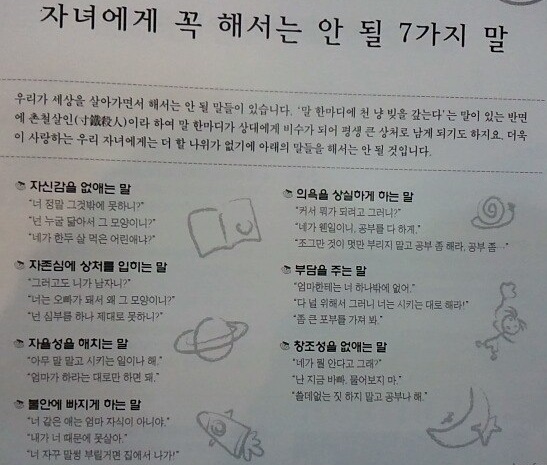 자녀에게 꼭 해서는 안 될 7가지 말
우리가 세상을 살아가면서 해서는 안 될 말들이 있습니다. '말 한마디에 천 냥 빚을 갚는다'는 말이 있는 반면
에 촌철살인(寸鐵殺人)이라 하여 말 한마디가 상대에게 비수가 되어 평생 큰 상처로 남게 되기도 하지요. 더욱
이 사랑하는 우리 자녀에게는 더 할 나위가 없기에 아래의 말들을 해서는 안 될 것입니다.
자신감을 없애는 말
"너 정말 그것밖에 못하니?"
"넌 누굴 닮아서 그 모양이니?"
"네가 한두 살 먹은 어린애냐?"
자존심에 상처를 입히는 말
"그러고도 니가 남자니?"
"너는 오빠가 돼서 왜 그 모양이니?"
"넌 심부름 하나 제대로 못하니?"
자율성을 해치는 말
"아무 말 말고 시키는 일이나 해."
"엄마가 하라는 대로만 하면 돼."
불안에 빠지게 하는 말
"너 같은 애는 엄마 자식이 아니야."
"내가 너 때문에 못살아."
"너 자꾸 말썽 부릴거면 집에서 나가!"
의욕을 상실하게 하는 말
"커서 뭐가 되려고 그러니?"
"네가 웬일이니, 공부를 다 하게."
"조그만 것이 멋만 부리지 말고 공부 좀 해라, 공부 좀…"
부담을 주는 말
"엄마한테는 너 하나밖에 없어."
"다 널 위해서 그러니 너는 시키는 대로 해라!"
"좀 큰 포부를 가져 봐."
창조성을 없애는 말
"네가 뭘 안다고 그래?"
"난 지금 바빠. 물어보지 마."
"쓸데없는 짓 하지 말고 공부나 해."